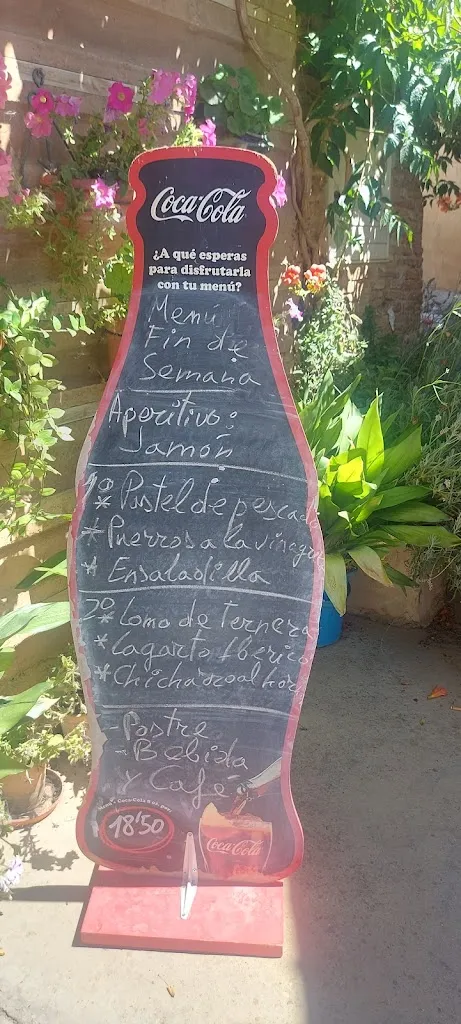 Coca-Cola
¿A qué esperas
para disfrutarla
con tu menú?
Menú
Fin de
Semana
Aperitivo:
Jamón
1º Pastel de pescado
* Puerros a la vinagre
* Ensaladilla
2º Lomo de ternera
* Lagarto Iberico
* Chicharro al horno
- Postre
- Bebida
y Café
18'50
Coca-Cola